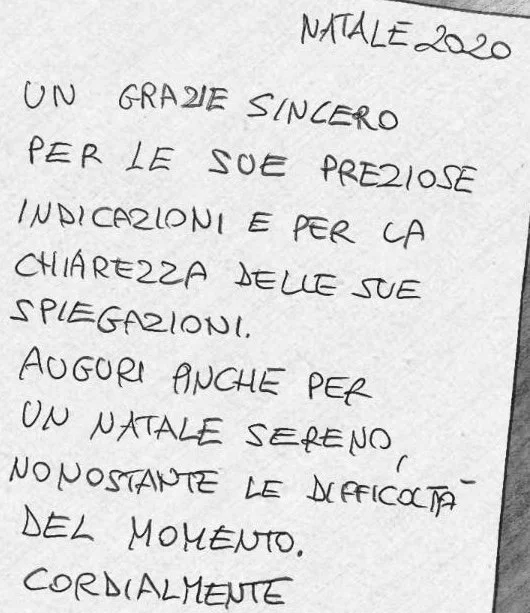 NATALE 2020
UN GRAZIE SINCERO
PER LE SUE PREZIOSE
INDICAZIONI E PER LA
CHIAREZZA DELLE SUE
SPIEGAZIONI.
AUGURI ANCHE PER
UN NATALE SERENO,
NONOSTANTE LE DIFFICOLTÀ
DEL MOMENTO.
CORDIALMENTE